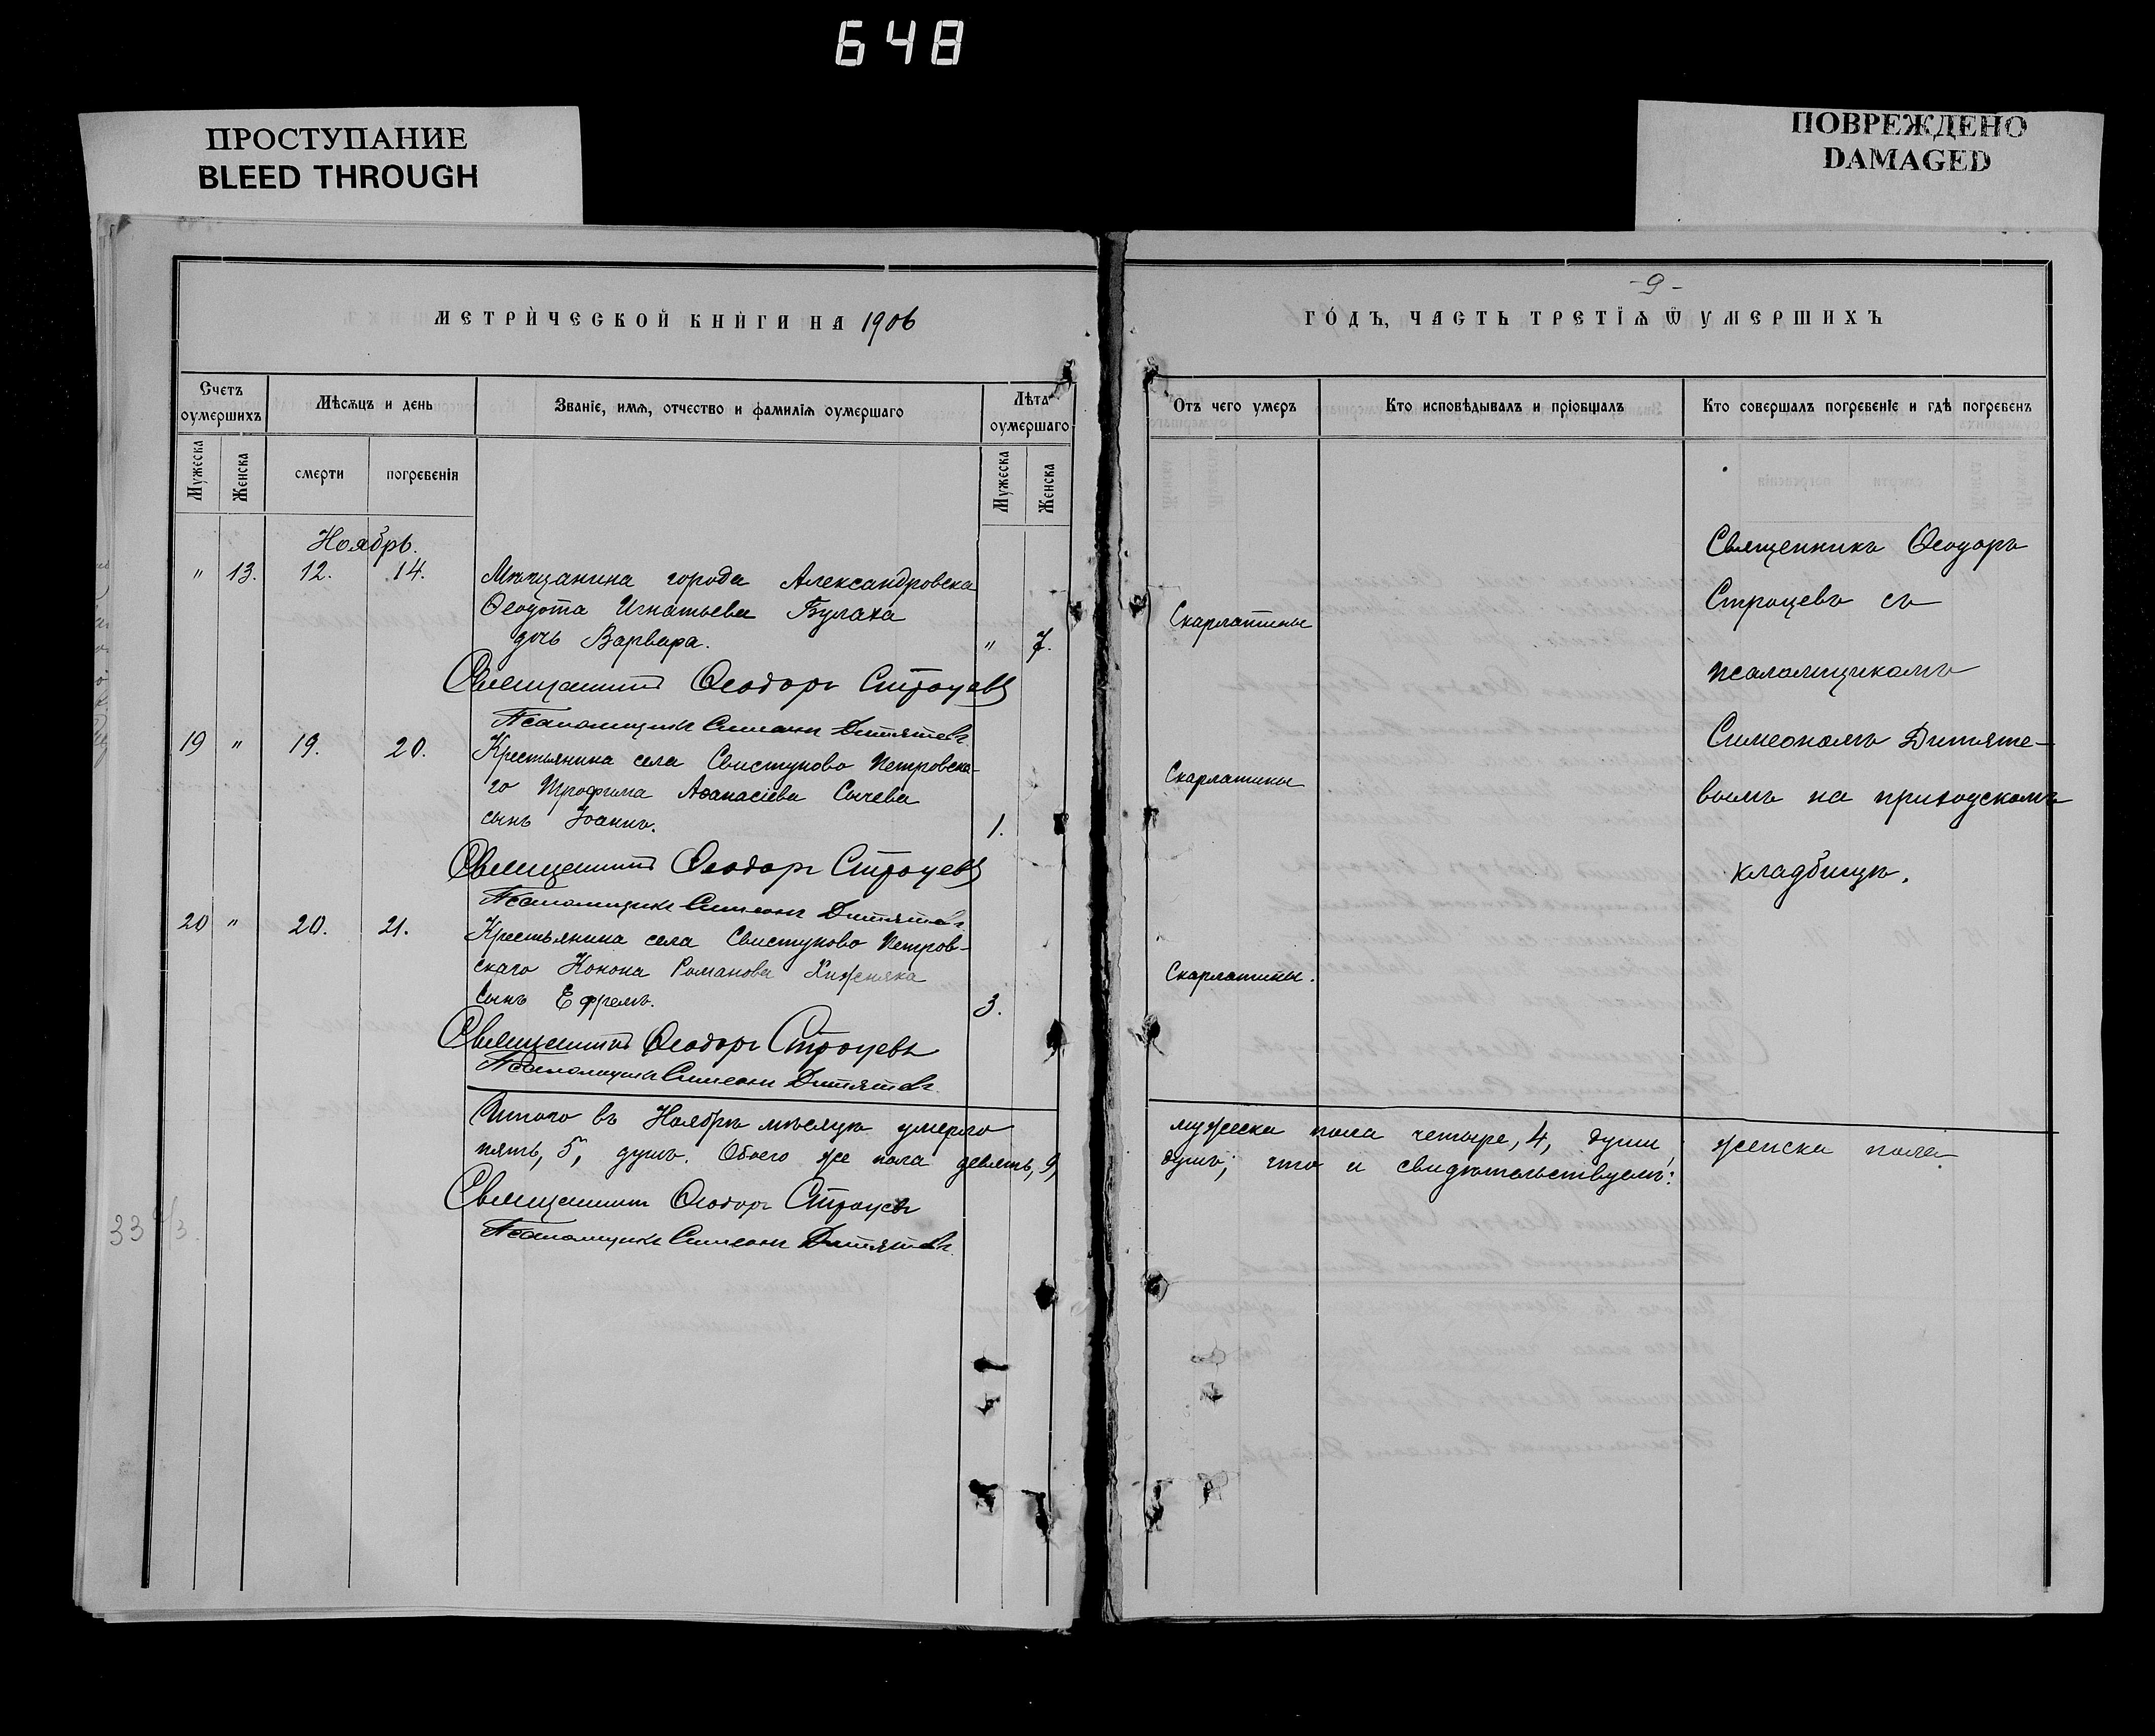 648
ПРОСТУПАНИЕ
BLEED THROUGH
ПОВРЕЖДЕНО
DAMAGED
МЕТРИЧЕСКОЙ КНИГИ НА 1906
Счетъ оумершихъ
Мѣсѧцъ и день
Званіе, имѧ, отчество и фамиліѧ оумершаго
Лѣта оумершаго
Мужеска
Женска
смерти
погребенія
Мужеска
Женска
Ноябрь.
" 13. 12. 14. Мѣщанина города Александровска
Ѳеодота Игнатьева Булаха
дочь Варвара. " 7.
Священникъ Ѳеодоръ Строцевъ
Псаломщикъ Симеонъ Дитятевъ.
19 " 19. 20. Крестьянина села Свистуново Петровска-
го Трофима Аѳанасіева Сычева
сынъ Іоаннъ. 1.
Священникъ Ѳеодоръ Строцевъ
Псаломщикъ Симеонъ Дитятевъ.
20 " 20. 21. Крестьянина села Свистуново Петров-
скаго Конона Романова Хижняка
сынъ Ефремъ. 3.
Священникъ Ѳеодоръ Строцевъ
Псаломщикъ Симеонъ Дитятевъ.
Итого въ Ноябрѣ мѣсяцѣ умерло
пять, 5, душъ. Обоего же пола девять, 9,
Священникъ Ѳеодоръ Строцевъ
Псаломщикъ Симеонъ Дитятевъ.
33
-9-
ГОДЪ, ЧАСТЬ ТРЕТІѦ Ѿ УМЕРШИХЪ
Отъ чего умеръ
Кто исповѣдывалъ и пріобщалъ
Кто совершалъ погребеніе и гдѣ погребенъ
Скарлатины
Скарлатины
Скарлатины.
Священникъ Ѳеодоръ
Строцевъ съ
псаломщикомъ
Симеономъ Дитяте-
вымъ на приходскомъ
кладбищѣ.
мужеска пола четыре, 4, души, женска пола
душъ; что и свидѣтельствуемъ: